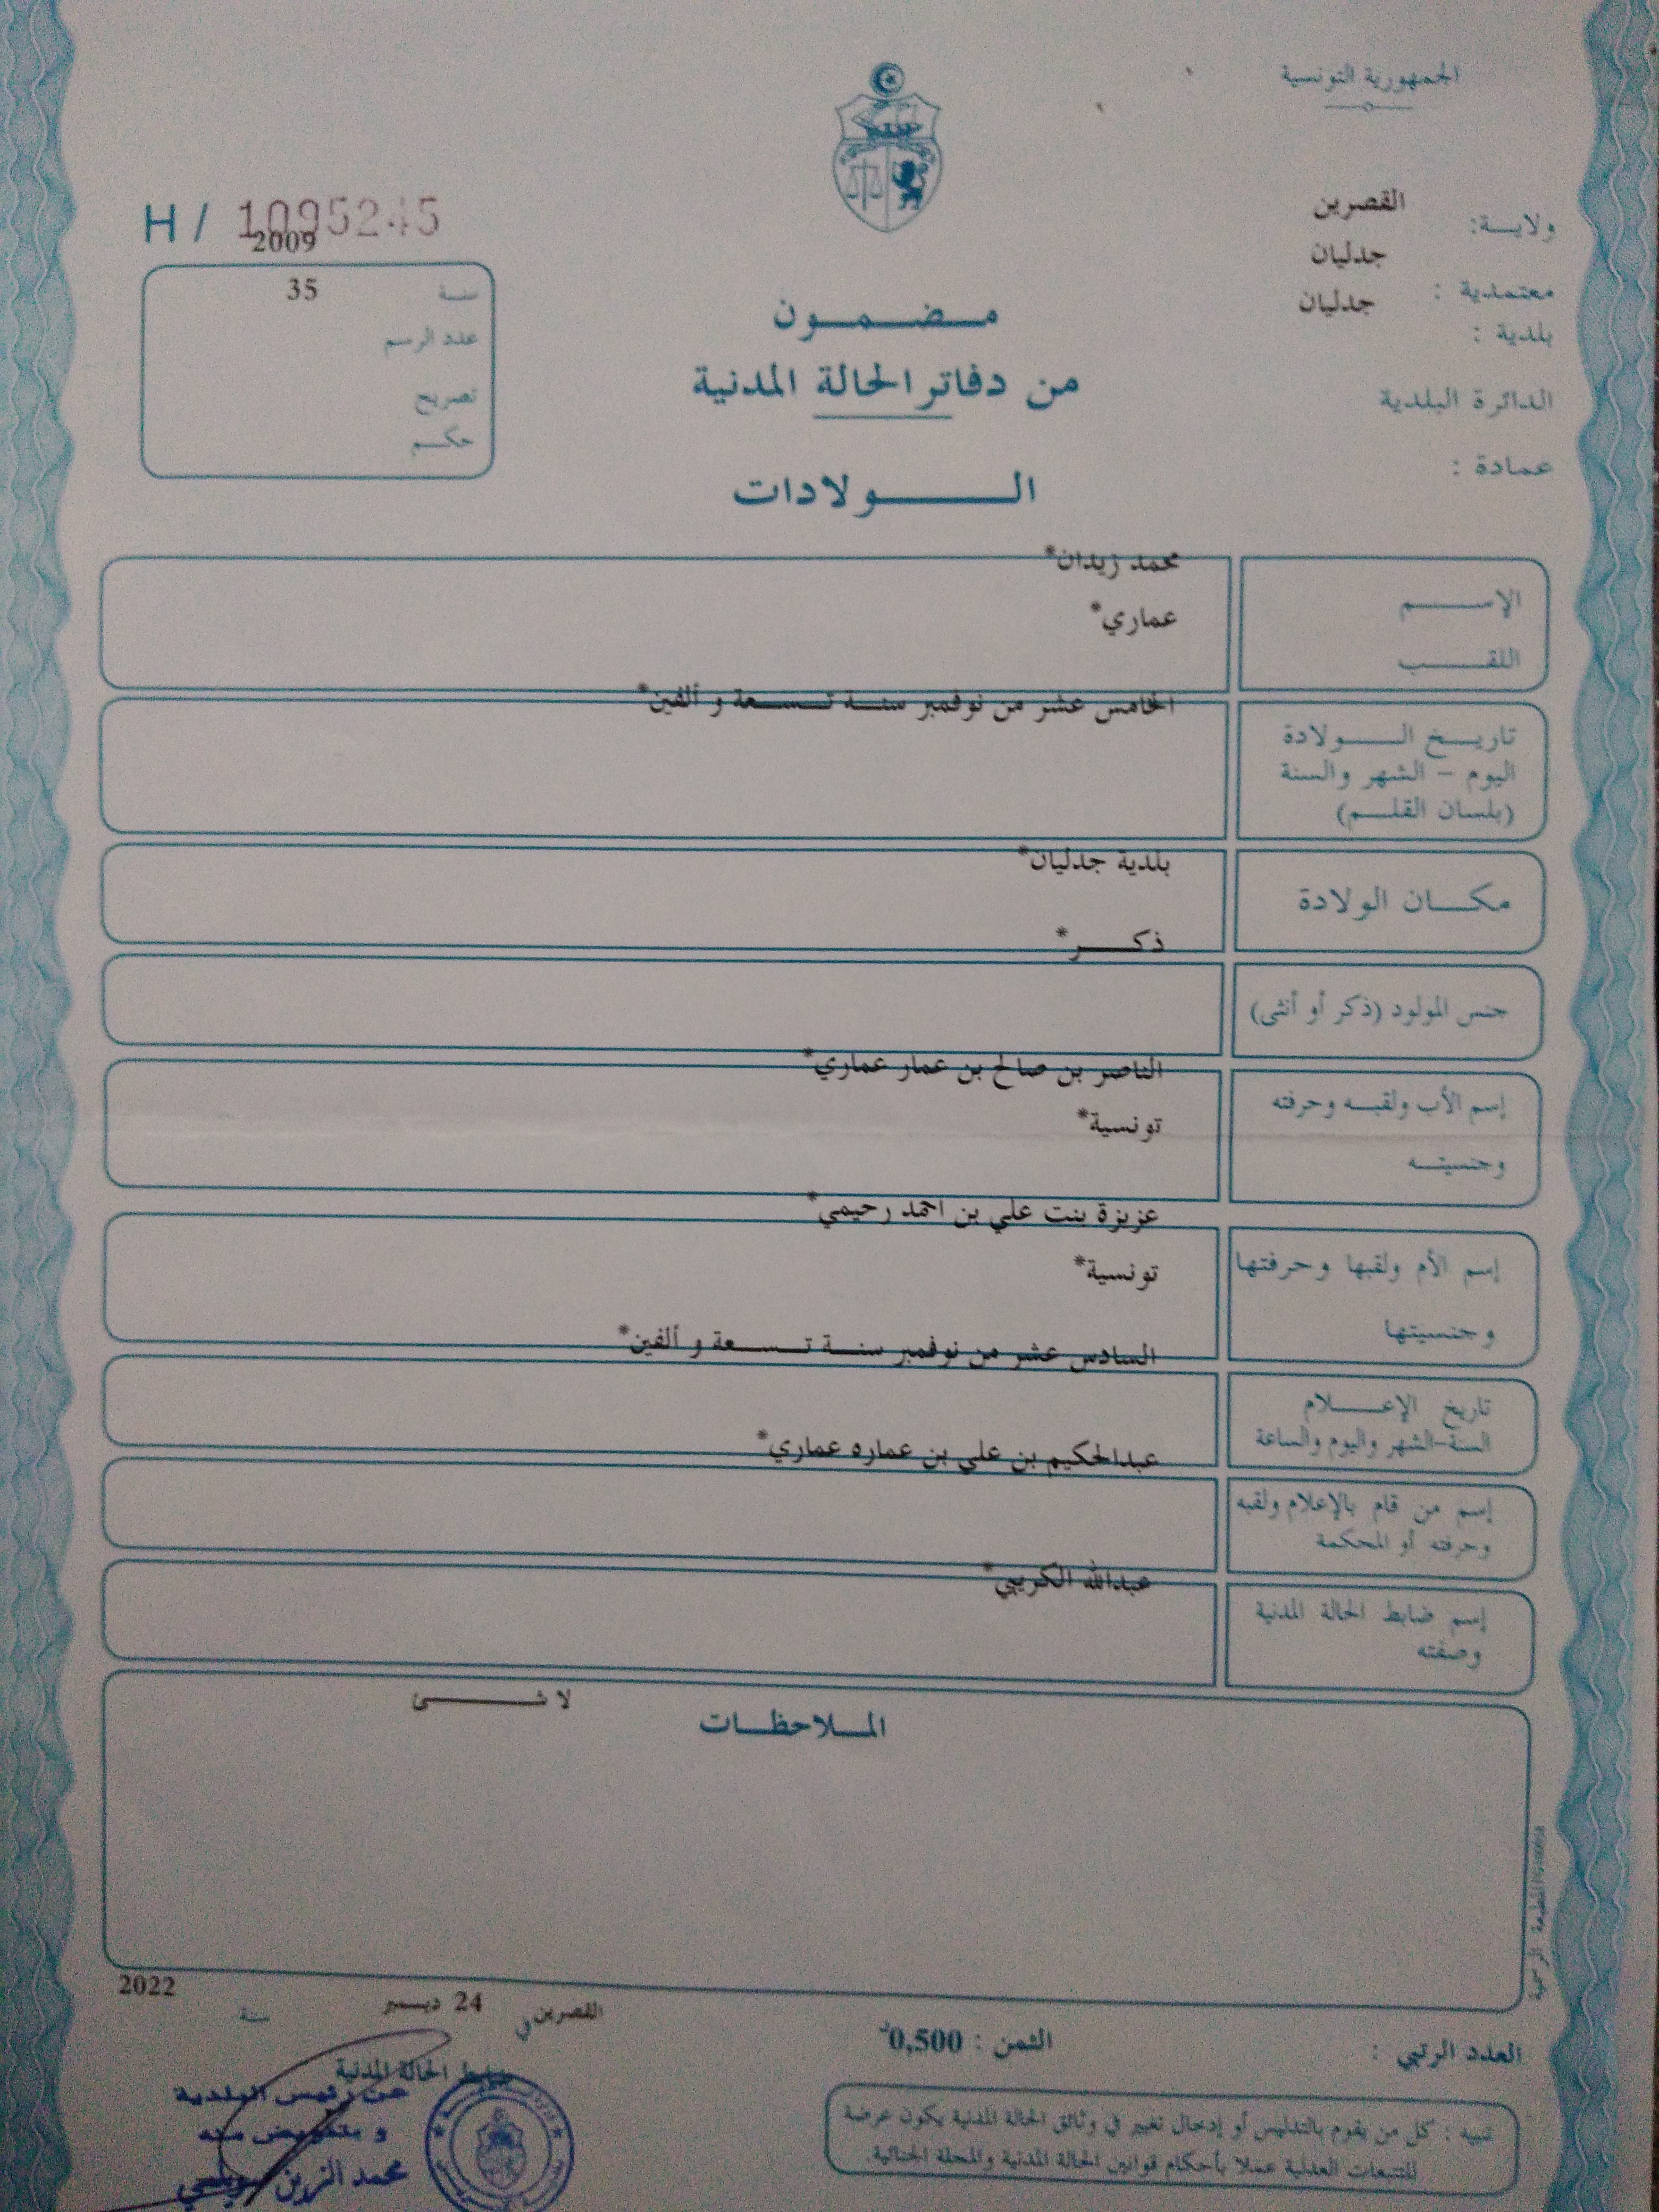 الجمهورية التونسية
ولايـــة: القصرين
معتمدية : جدليان
بلدية : جدليان
الدائرة البلدية
عمادة :
H / 1095245
2009
سنة 35
عدد الرسم
تصريح
حكم
مضمون
من دفاتر الحالة المدنية
الولادات
محمد زيدان*
الإسم
عماري*
اللقب
الخامس عشر من نوفمبر سنة تسعة و ألفين*
تاريخ الولادة
اليوم - الشهر والسنة
(بلسان القلم)
بلدية جدليان*
مكان الولادة
ذكر*
جنس المولود (ذكر أو أنثى)
الناصر بن صالح بن عمار عماري*
إسم الأب ولقبه وحرفته
تونسية*
وجنسيته
عزيزة بنت علي بن احمد رحيمي*
إسم الأم ولقبها وحرفتها
تونسية*
وجنسيتها
السادس عشر من نوفمبر سنة تسعة و ألفين*
تاريخ الإعلام
السنة-الشهر واليوم والساعة
عبدالحكيم بن علي بن عماره عماري*
إسم من قام بالإعلام ولقبه
وحرفته أو المحكمة
عبدالله الكريبي*
إسم ضابط الحالة المدنية
وصفته
لا شى
الملاحظات
المطبعة الرسمية
القصرين في 24 ديسمبر سنة 2022
العدد الرتبي :
الثمن : 0,500د
ضابط الحالة المدنية
عن رئيس البلدية
و بتفويض منه
محمد الزين
تنبيه : كل من يقوم بالتدليس أو إدخال تغيير في وثائق الحالة المدنية يكون عرضة
للتتبعات العدلية عملا بأحكام قوانين الحالة المدنية والمجلة الجنائية.